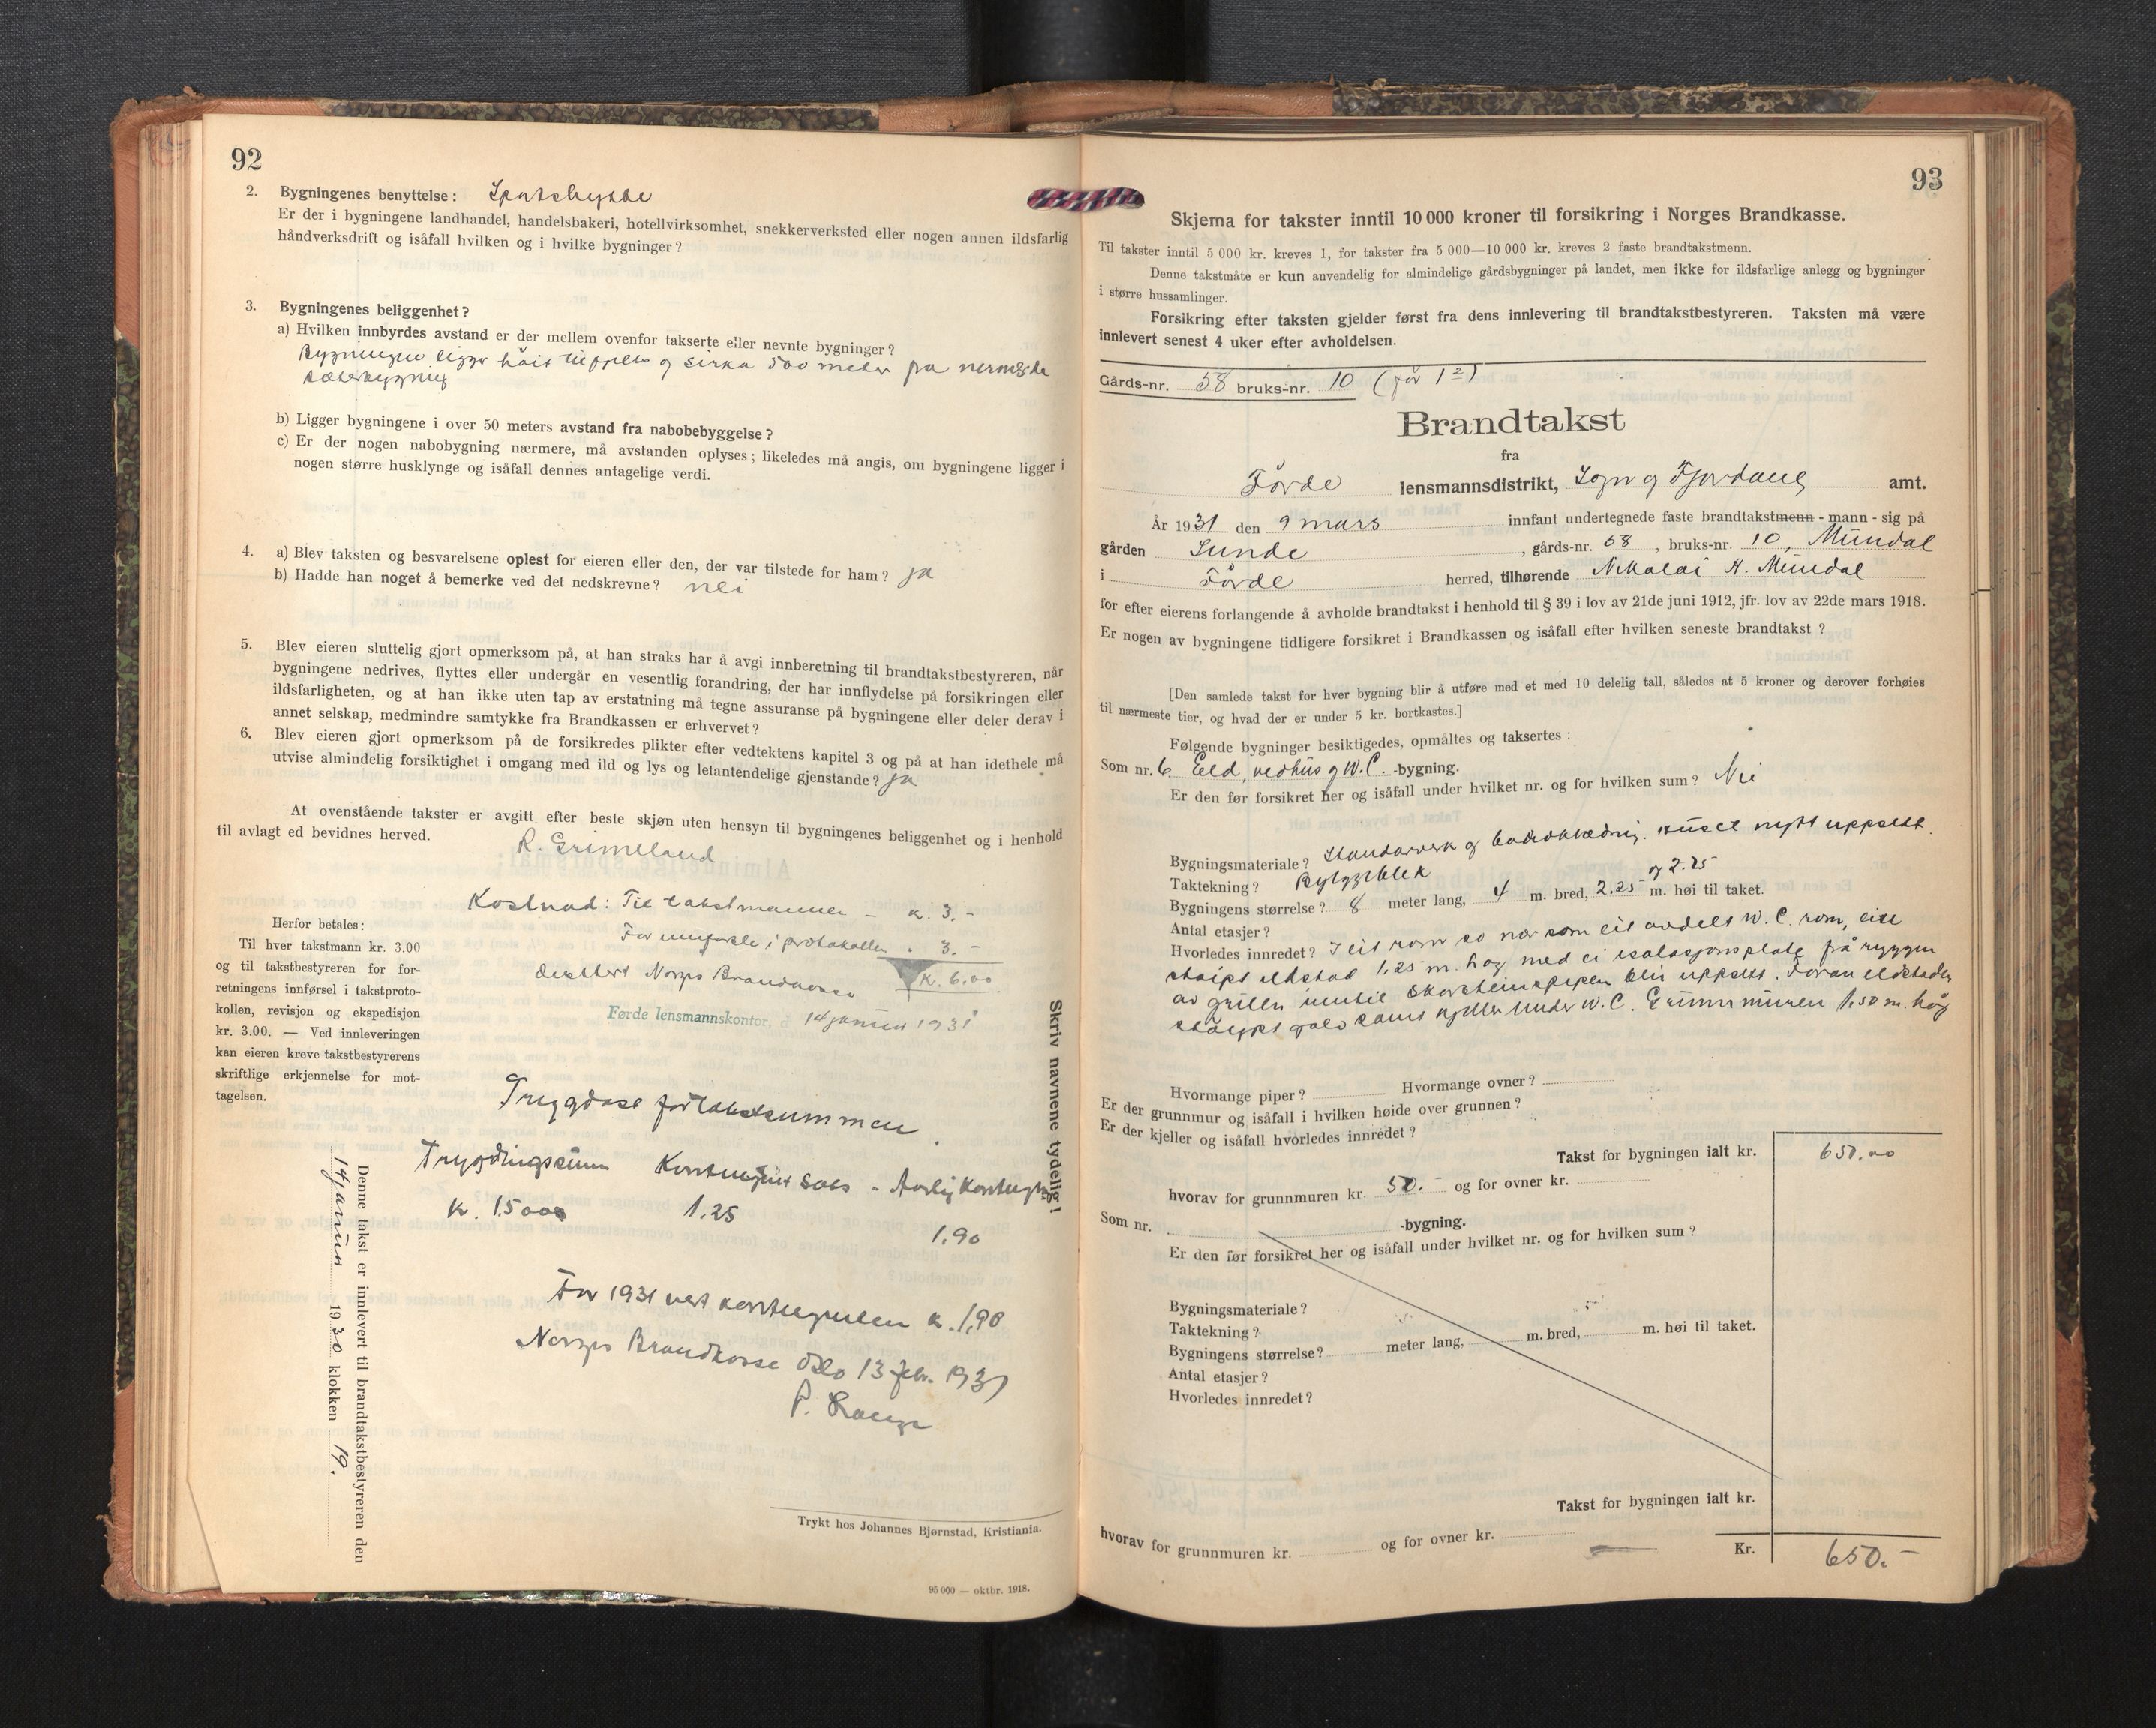 92
2. Bygningenes benyttelse: Sportshytte
Er der i bygningene landhandel, handelsbakeri, hotellvirksomhet, snekkerverksted eller nogen annen ildsfarlig
håndverksdrift og isåfall hvilken og i hvilke bygninger?
3. Bygningenes beliggenhet?
a) Hvilken innbyrdes avstand er der mellem ovenfor takserte eller nevnte bygninger?
Bygningen ligger høit til fjells og sirka 500 meter fra nermeste
sæterbygning
b) Ligger bygningene i over 50 meters avstand fra nabobebyggelse?
c) Er der nogen nabobygning nærmere, må avstanden oplyses; likeledes må angis, om bygningene ligger i
nogen større husklynge og isåfall dennes antagelige verdi.
4. a) Blev taksten og besvarelsene oplest for eieren eller den, der var tilstede for ham? ja
b) Hadde han noget å bemerke ved det nedskrevne? nei
5. Blev eieren sluttelig gjort opmerksom på, at han straks har å avgi innberetning til brandtakstbestyreren, når
bygningene nedrives, flyttes eller undergår en vesentlig forandring, der har innflydelse på forsikringen eller
ildsfarligheten, og at han ikke uten tap av erstatning må tegne assuranse på bygningene eller deler derav i
annet selskap, medmindre samtykke fra Brandkassen er erhvervet?
6. Blev eieren gjort opmerksom på de forsikredes plikter efter vedtektens kapitel 3 og på at han idethele må
utvise almindelig forsiktighet i omgang med ild og lys og letantendelige gjenstande? ja
At ovenstående takster er avgitt efter beste skjøn uten hensyn til bygningenes beliggenhet og i henhold
til avlagt ed bevidnes herved.
R. Grimeland
Kostnad: Til takstmannen – K. 3.–
For innførsle i protokollen " 3.–
Norges Brandkasse K. 6.00
Førde lensmannskontor, d. 14 januar 1931
Herfor betales:
Til hver takstmann kr. 3.00
og til takstbestyreren for for-
retningens innførsel i takstproto-
kollen, revisjon og ekspedisjon
kr. 3.00. — Ved innleveringen
kan eieren kreve takstbestyrerens
skriftlige erkjennelse for mot-
tagelsen.
Trygdast for takstsummen.
Trygdingssum Kontingent sats - Aarlig Kontingent
Kr. 1500 1.25
1.90
For 1931 vert kontingenten kr. 1,90
Norges Brandkasse Oslo 13 febr. 1931
Skriv navnene tydelig!
Denne takst er innlevert til brandtakstbestyreren den
14 januar 1930 klokken 19.
Trykt hos Johannes Bjørnstad, Kristiania.
95 000 — oktbr. 1918.
93
Skjema for takster inntil 10 000 kroner til forsikring i Norges Brandkasse.
Til takster inntil 5 000 kr. kreves 1, for takster fra 5 000—10 000 kr. kreves 2 faste brandtakstmenn.
Denne takstmåte er kun anvendelig for almindelige gårdsbygninger på landet, men ikke for ildsfarlige anlegg og bygninger
i større hussamlinger.
Forsikring efter taksten gjelder først fra dens innlevering til brandtakstbestyreren. Taksten må være
innlevert senest 4 uker efter avholdelsen.
Gårds-nr. 58 bruks-nr. 10 (før 12)
Brandtakst
fra
Førde lensmannsdistrikt, Sogn og Fjordane amt.
År 1931 den 9 mars innfant undertegnede faste brandtakstmenn - mann - sig på
gården Sunde, gårds-nr. 58, bruks-nr. 10, Mundal
i Førde herred, tilhørende Nikolai A. Mundal
for efter eierens forlangende å avholde brandtakst i henhold til § 39 i lov av 21de juni 1912, jfr. lov av 22de mars 1918.
Er nogen av bygningene tidligere forsikret i Brandkassen og isåfall efter hvilken seneste brandtakst?
[Den samlede takst for hver bygning blir å utføre med et med 10 delelig tall, således at 5 kroner og derover forhøies
til nærmeste tier, og hvad der er under 5 kr. bortkastes.]
Følgende bygninger besiktigedes, opmåltes og taksertes:
Som nr. 6. Eld, vedhus og W.C. -bygning.
Er den før forsikret her og isåfall under hvilket nr. og for hvilken sum? Nei
Bygningsmateriale? Standarverk og bordklædning. Huset nytt uppsett.
Taktekning? Bylgjeblek
Bygningens størrelse? 8 meter lang, 4 m. bred, 2.25 og 2.25 m. høi til taket.
Antal etasjer?
Hvorledes innredet? I eit rom so nær som eit avdelt W.C. rom, eitt
støipt eldstad 1,25 m. høg med ei isolasjonsplate på ryggen
av grillen inntil skorsteinspipen blir uppsett. Foran eldstaden
støypt golv samt kjeller under W.C. Grunnmuren 1,50 m. høg
Hvormange piper? Hvormange ovner?
Er der grunnmur og isåfall i hvilken høide over grunnen?
Er der kjeller og isåfall hvorledes innredet?
Takst for bygningen ialt kr. 650.00
hvorav for grunnmuren kr. 50.– og for ovner kr.
Som nr. -bygning.
Er den før forsikret her og isåfall under hvilket nr. og for hvilken sum?
Bygningsmateriale?
Taktekning?
Bygningens størrelse? meter lang, m. bred, m. høi til taket.
Antal etasjer?
Hvorledes innredet?
Takst for bygningen ialt kr.
hvorav for grunnmuren kr. og for ovner kr.
Kr. 650.–